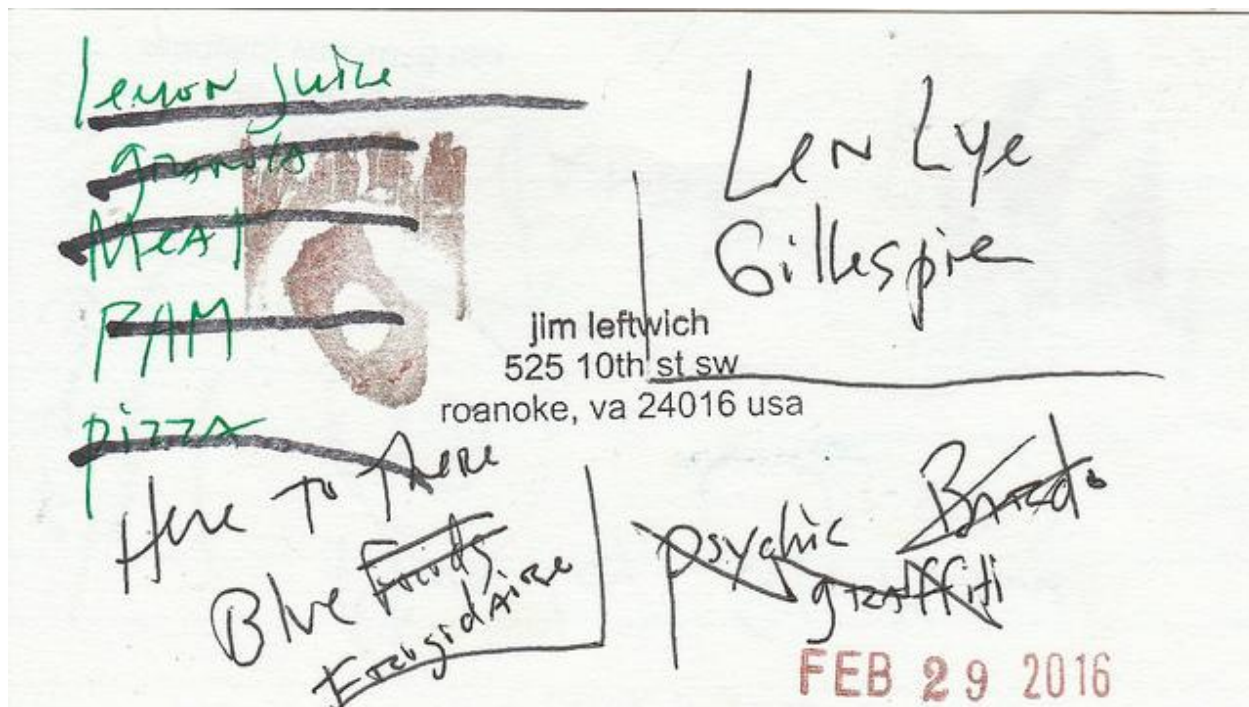 Lemon juice
granola
Meat
PAM
pizza
Len Lye
Gillespie
jim leftwich
525 10th st sw
roanoke, va 24016 usa
Here To There
Blue
psychic
graffiti
FEB 29 2016